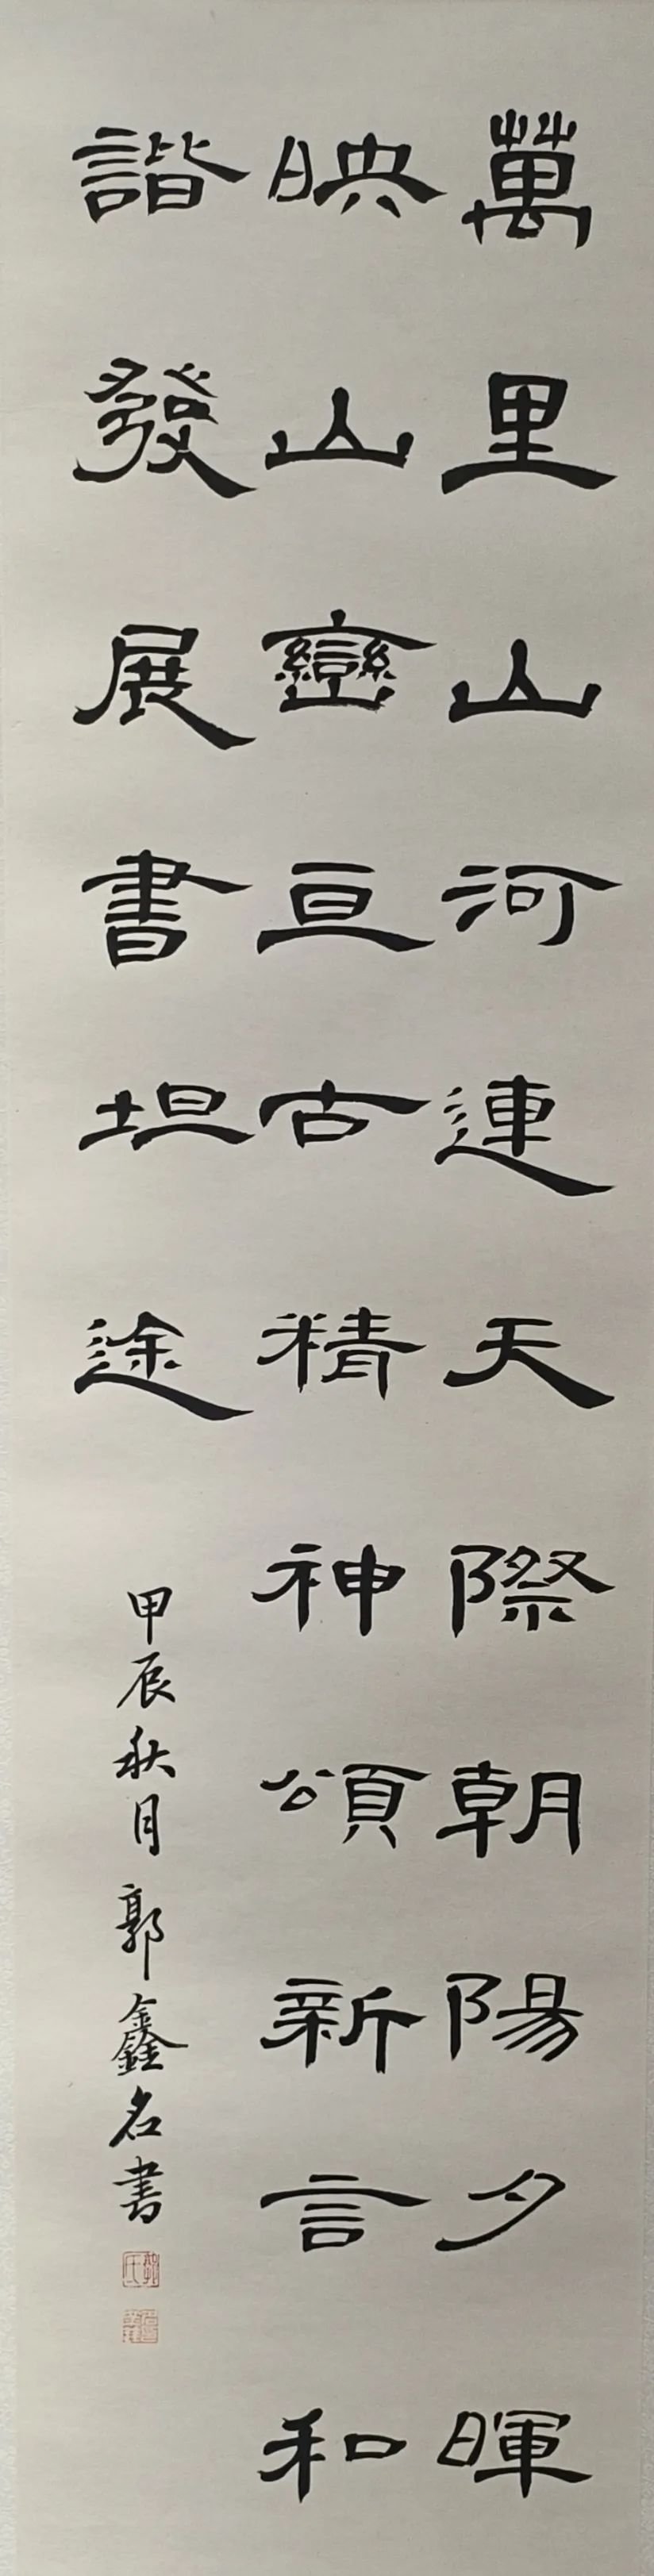 萬里山河連天際朝陽夕暉
映山巒亘古精神頌新言和
諧發展書坦途
甲辰秋月郭鑫名書